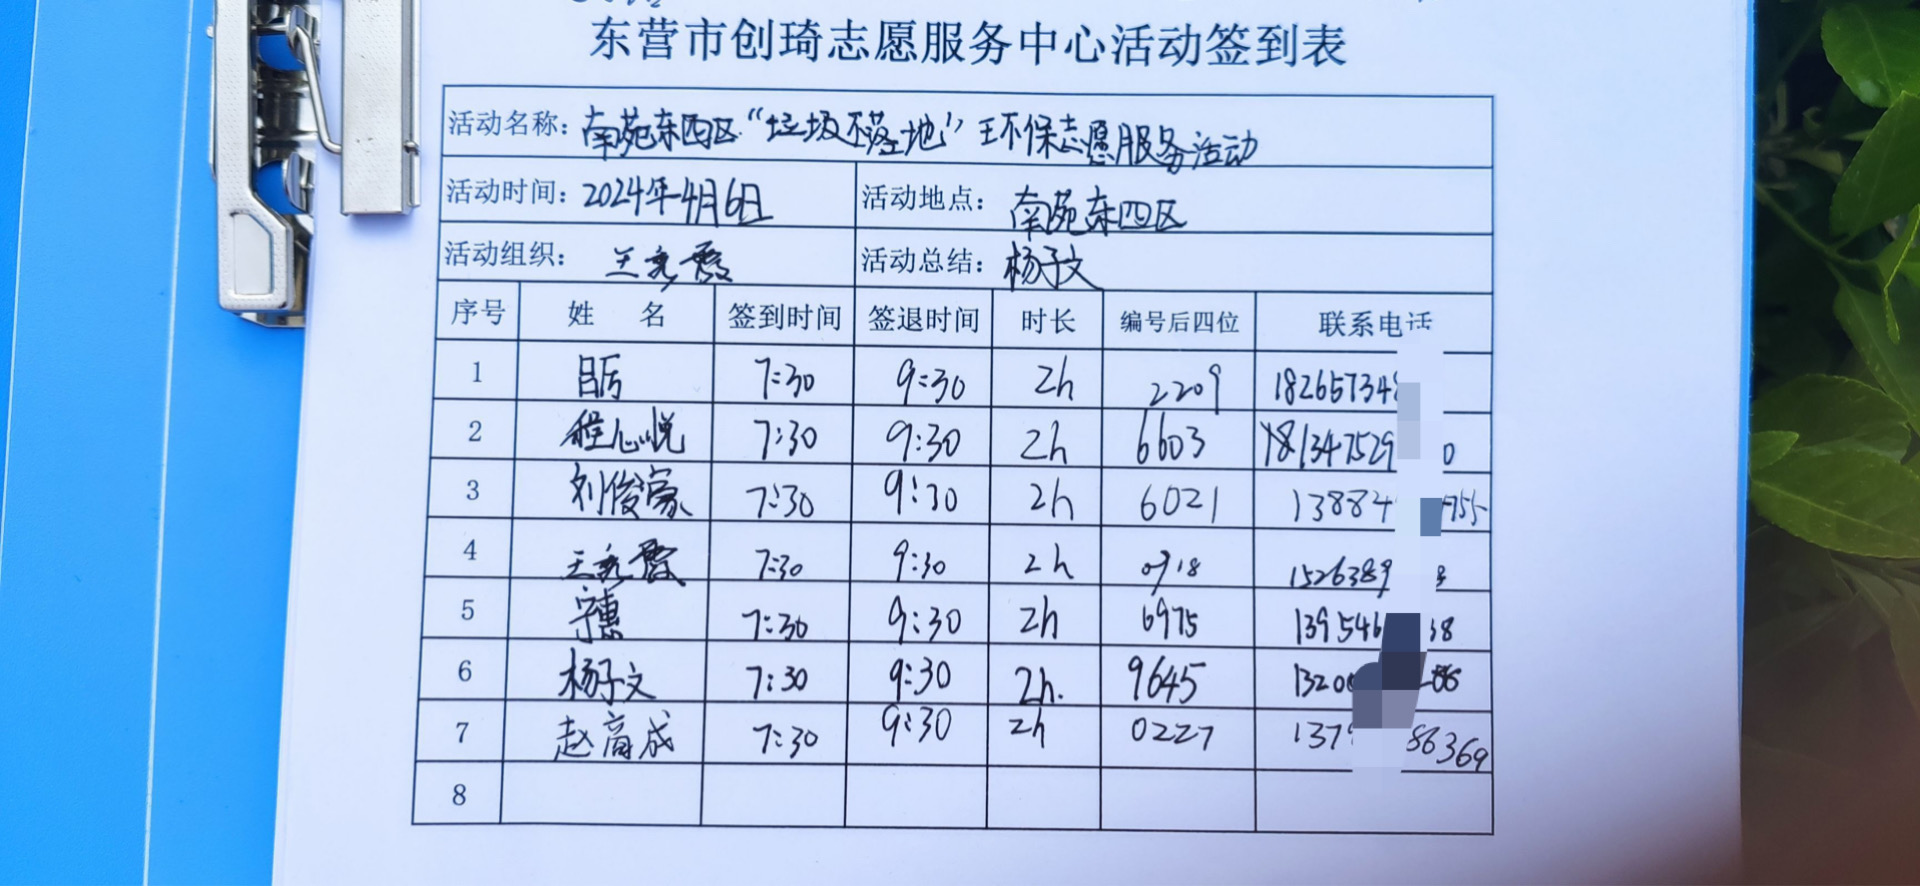 东营市创琦志愿服务中心活动签到表
活动名称：南苑东四区“垃圾不落地”环保志愿服务活动
活动时间：2024年4月6日 活动地点：南苑东四区
活动组织：王彩霞 活动总结：杨子文
序号 姓 名 签到时间 签退时间 时长 编号后四位 联系电话
1 7:30 9:30 2h 2209 182657348
2 程心悦 7:30 9:30 2h 6603 181347529 0
3 刘俊豪 7:30 9:30 2h 6021 13884 955
4 王彩霞 7:30 9:30 2h 0918 1526389
5 宁惠 7:30 9:30 2h 6975 139546 38
6 杨子文 7:30 9:30 2h. 9645 1320 86
7 赵高成 7:30 9:30 2h 0227 137 86369
8